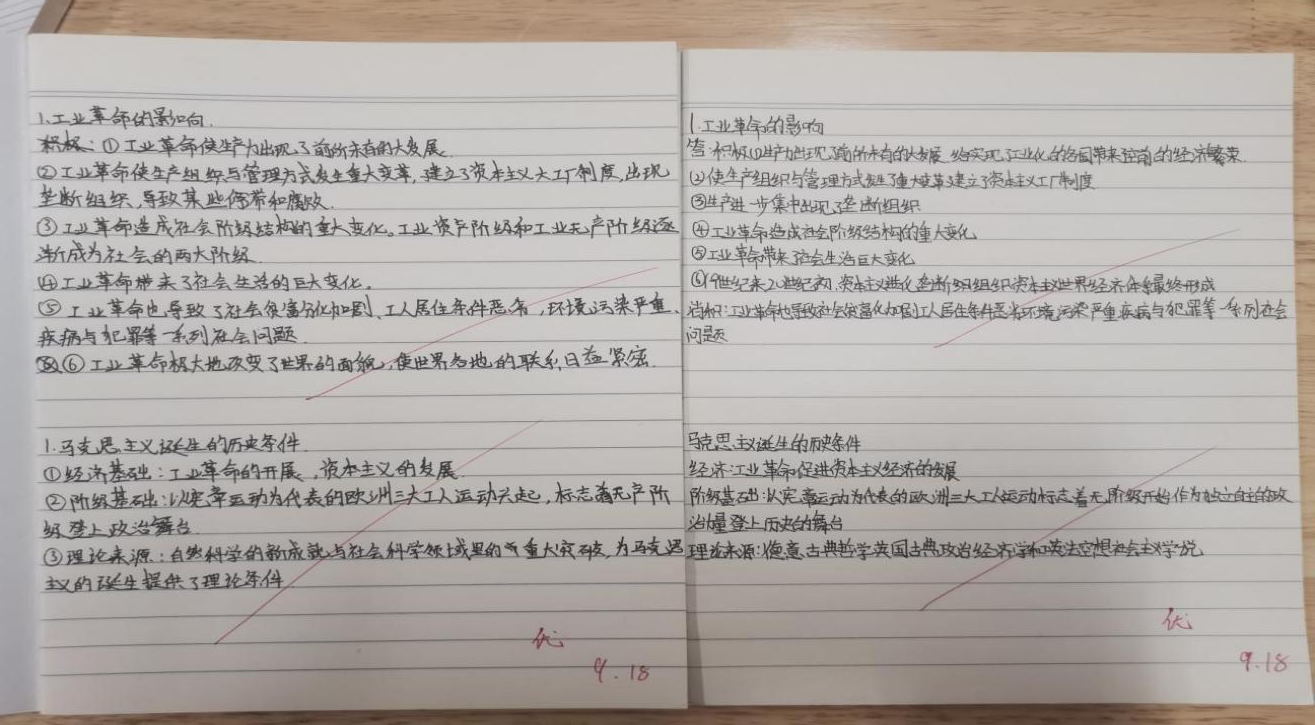 1.工业革命的影响.
积极：①工业革命使生产力出现了前所未有的大发展.
②工业革命使生产组织与管理方式发生重大变革,建立了资本主义大工厂制度,出现
垄断组织,导致某些停滞和腐败.
③工业革命造成社会阶级结构的重大变化。工业资产阶级和工业无产阶级逐
渐成为社会的两大阶级.
④工业革命带来了社会生活的巨大变化。
⑤工业革命也导致了社会贫富分化加剧、工人居住条件恶劣,环境污染严重、
疾病与犯罪等一系列社会问题.
⑥工业革命极大地改变了世界的面貌,使世界各地的联系日益紧密.
1.马克思主义诞生的历史条件.
①经济基础：工业革命的开展,资本主义的发展
②阶级基础：以宪章运动为代表的欧洲三大工人运动兴起,标志着无产阶
级登上政治舞台.
③理论来源：自然科学的新成就与社会科学领域里的重大突破,为马克思
主义的诞生提供了理论条件.
优
9.18
1.工业革命的影响
答:积极①生产力出现了前所未有的大发展 给实现了工业化的各国带来空前的经济繁荣.
②使生产组织与管理方式发生了重大变革建立了资本主义工厂制度
③生产进一步集中出现了垄断组织
④工业革命造成社会阶级结构的重大变化
⑤工业革命带来社会生活巨大变化
⑥19世纪末20世纪初,资本主义进化垄断组织资本主义世界经济体系最终形成
消积:工业革命也导致社会贫富化加剧工人居住条件恶劣环境污染严重疾病与犯罪等一系列社会
问题
马克思主义诞生的历史条件
经济:工业革命促进资本主义经济的发展
阶级基础:以宪章运动为代表的欧洲三大工人运动标志着无阶级开始作为独立自主的政
治力量登上历史的舞台
理论来源:德意古典哲学英国古典政治经济学和英法空想社会主义学说
优
9.18